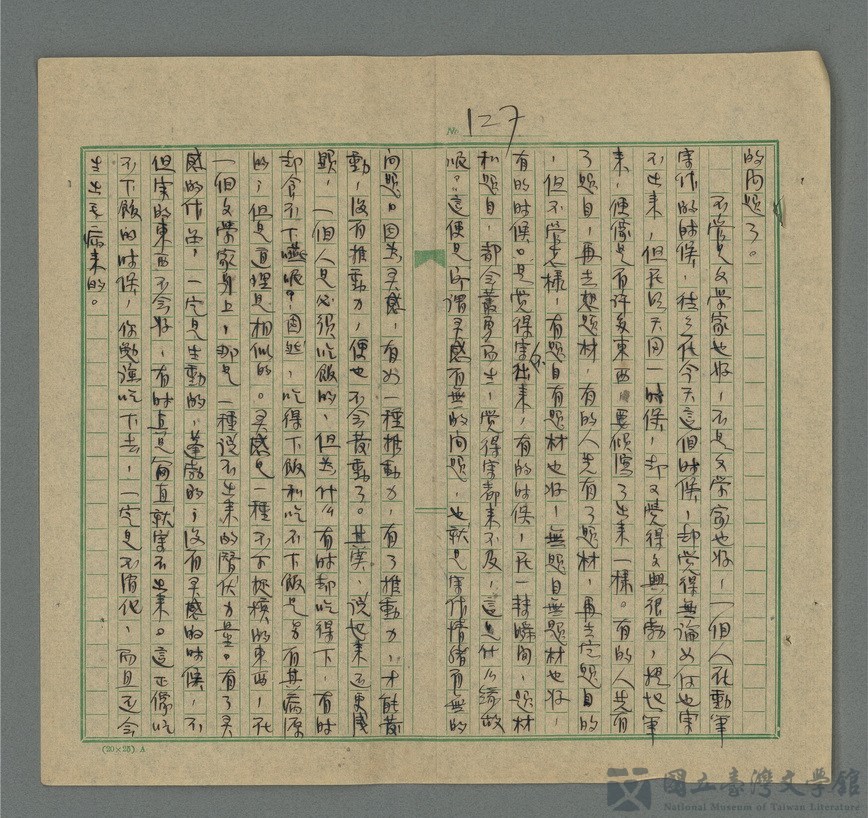 No. 127
的問題了。
不管是文學家也好，不是文學家也好，一個人在動筆
寫作的時候，往往在今天這個時候，却覺得無論如何也寫
不出來，但在明天同一時候，却又覺得文興很勃，提起筆
來，便像是有许多東西要傾瀉了出來一樣。有的人先有
了題目，再去想題材，有的人先有了題材，再去定題目的
，但不管怎樣，有題目有題材也好，無題目無題材也好，
有的時候只是覺得寫不出來，有的時候，在一辣瞬間，題材
和題目，都会叢勇而生，覺得寫都來不及，這是什么緣故
呢？這便是所謂灵感有無的問題，也就是寫作情緒有無的
問題。因為灵感，有如一種推動力，有了推動力，才能發
動，沒有推動力，便也不会發動了。其实，说起來还更淺
顯，一個人是必須吃飯的，但為什么有時却吃得下，有時
却會不下嚥呢？固然，吃得下飯和吃不下飯是另有其病源
的；但是道理是相似的。灵感是一種不可捉摸的東西，在
一個文學家身上，那是一種说不出來的潛伏力量。有了灵
感的作品，一定是生動的，蓬勃的；沒有灵感的時候，不
但寫的東西不会好，有時直是簡直就寫不出來。這正像吃
不下飯的時候，你勉強吃下去，一定是不消化，而且还会
生出毛病來的。
(20×25) A
國立臺灣文學館
National Museum of Taiwan Literature